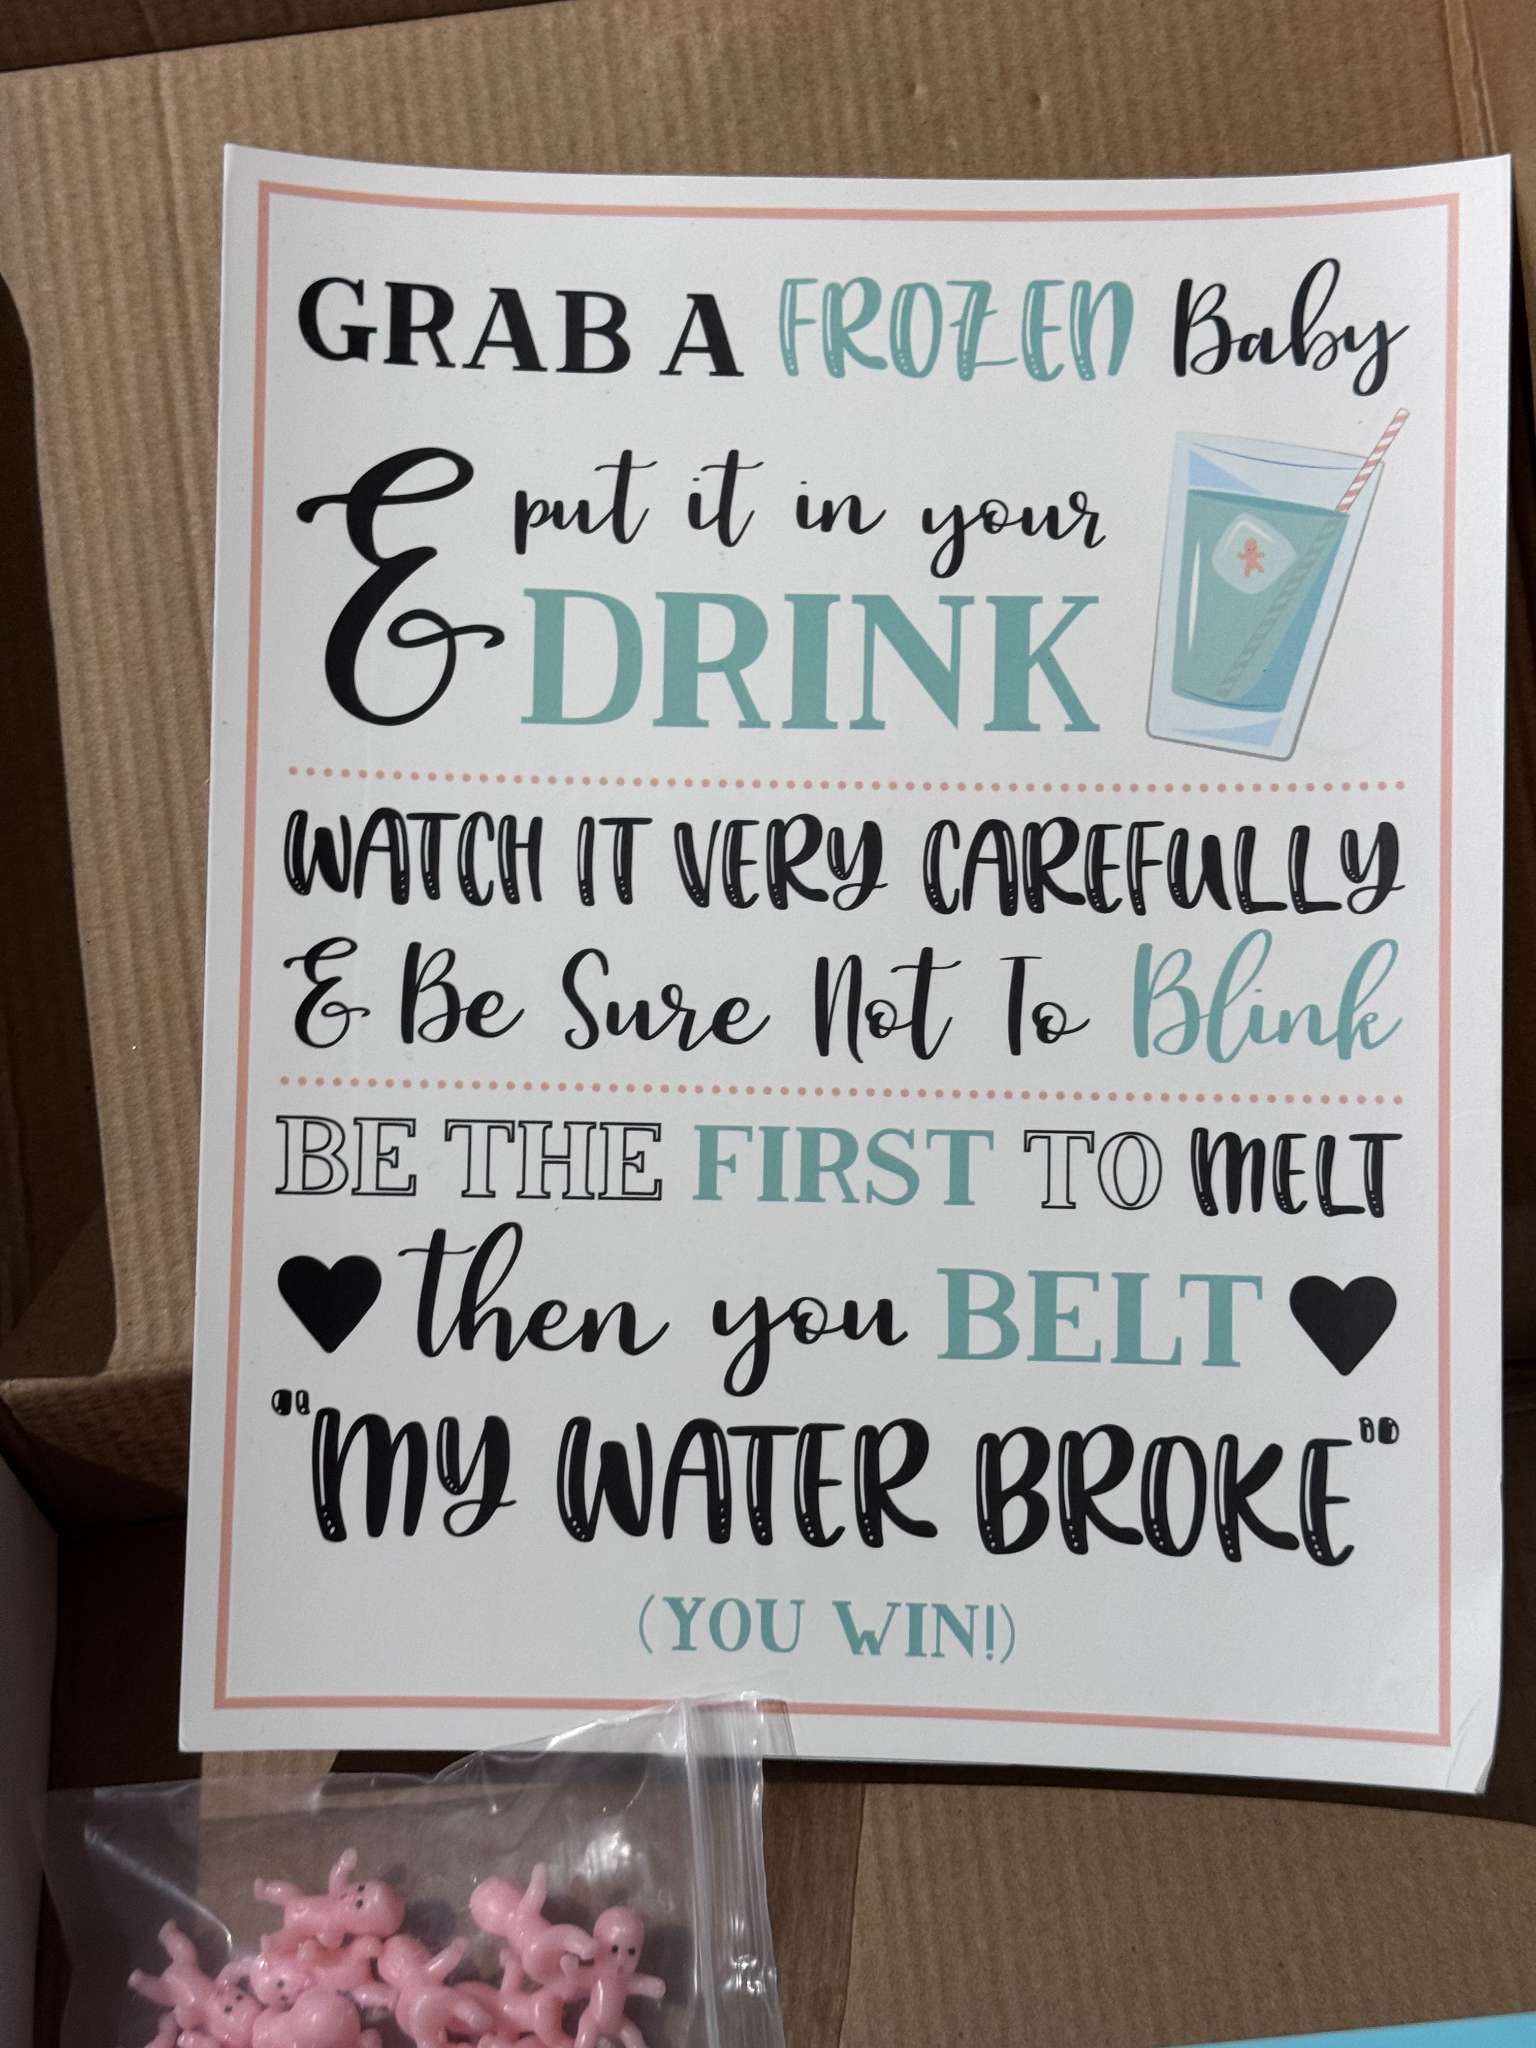 GRAB A FROZEN Baby
& put it in your
DRINK
WATCH IT VERY CAREFULLY
& Be Sure Not To Blink
BE THE FIRST TO MELT
then you BELT
"MY WATER BROKE"
(YOU WIN!)